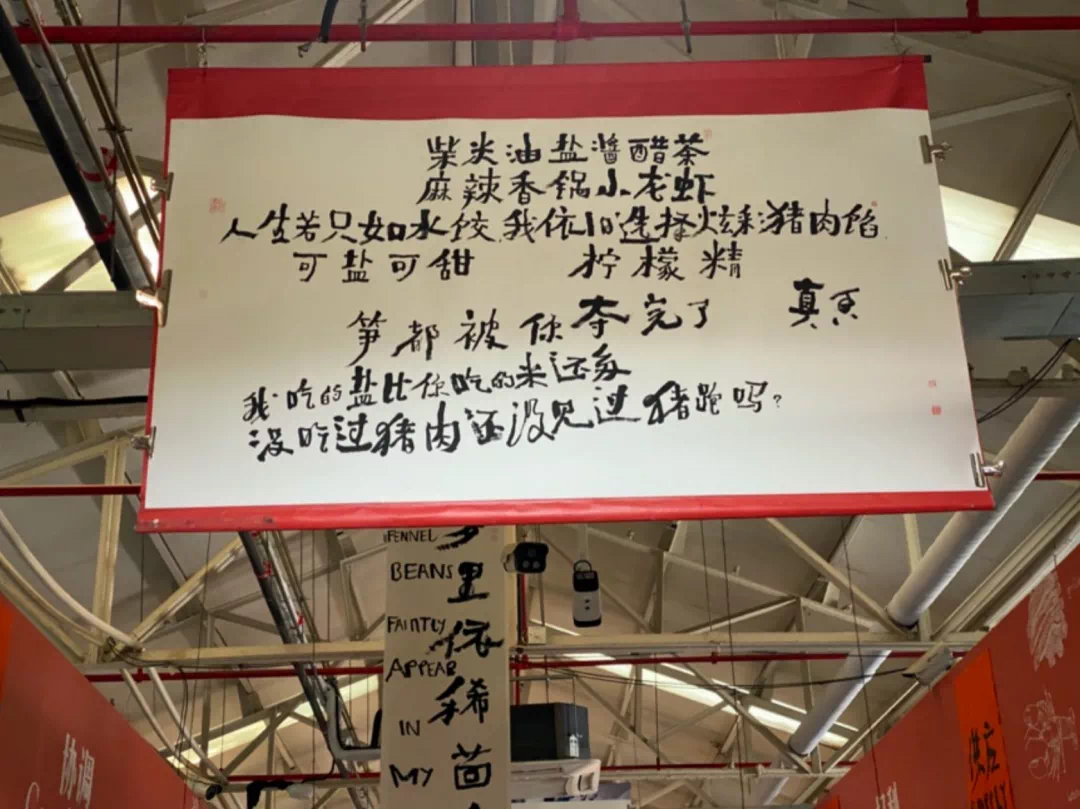 柴米油盐酱醋茶
麻辣香锅小龙虾
人生若只如水饺,我依旧选择炫彩猪肉馅
可盐可甜 柠檬精
笋都被你夺完了 真香
我吃的盐比你吃的米还多
没吃过猪肉还没见过猪跑吗?
FENNEL
BEANS
FAINTLY
APPEAR
IN
MY
里
依
稀
茴
协调
供应